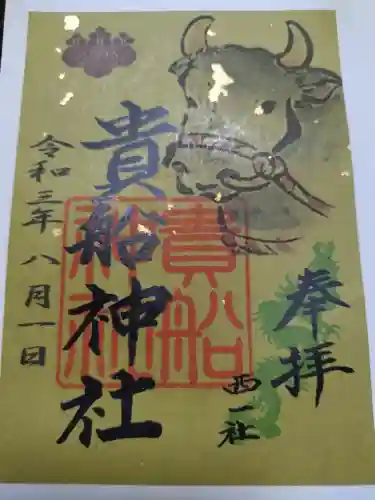 奉拝
西一社
貴船神社
貴船神社
令和三年八月一日